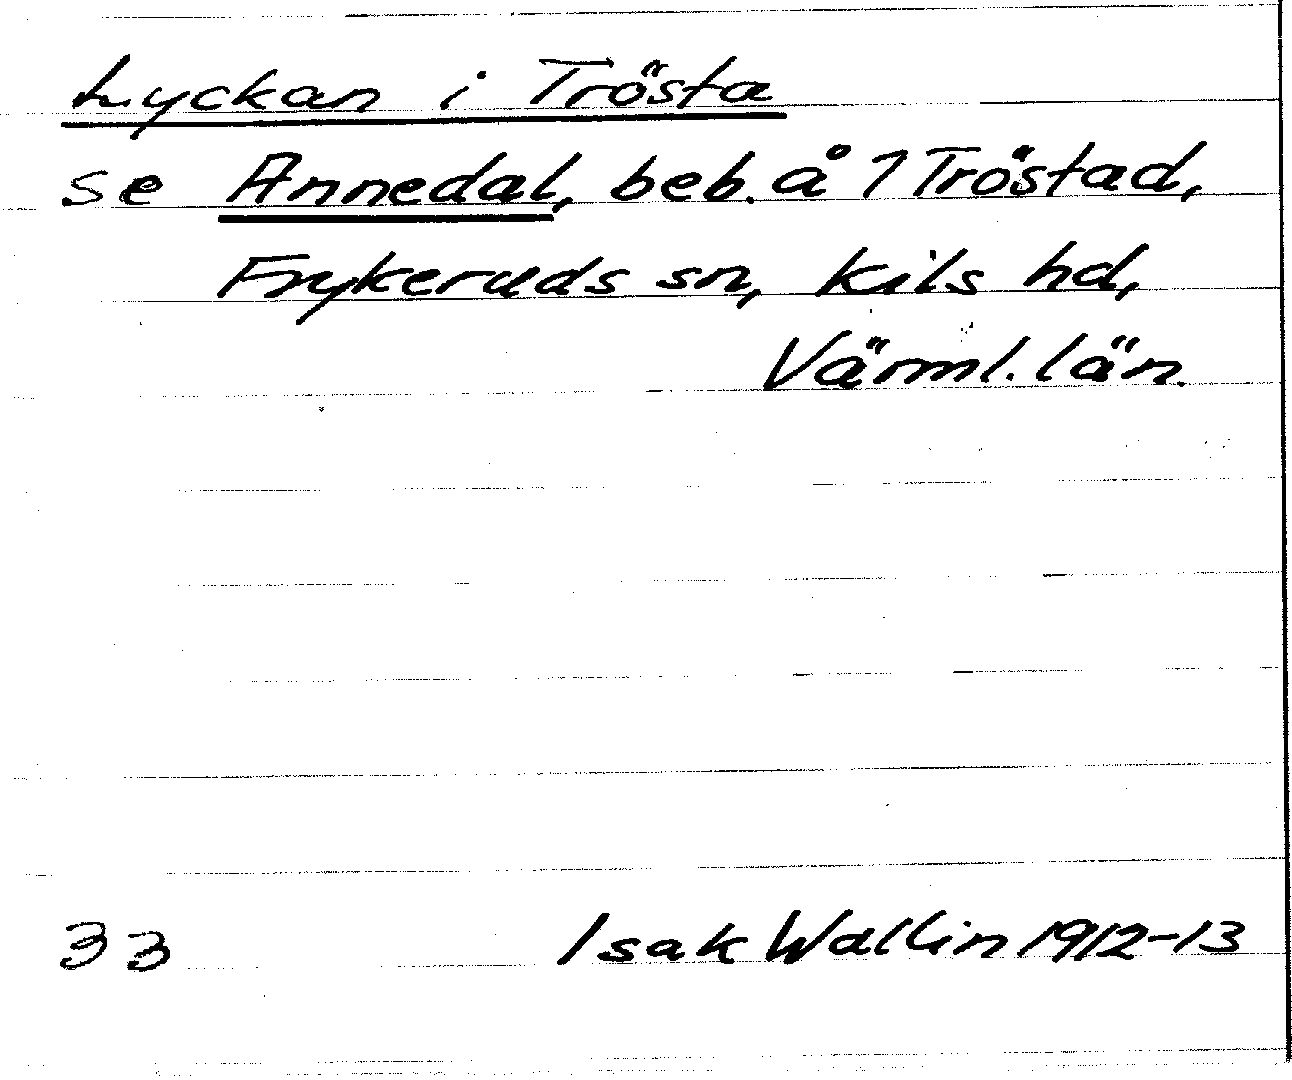 Lyckan i Trösta
se Annedal, beb. å 1 Tröstad,
Frykeruds sn, Kils hd,
Värml. län.
33 Isak Wallin 1912-13